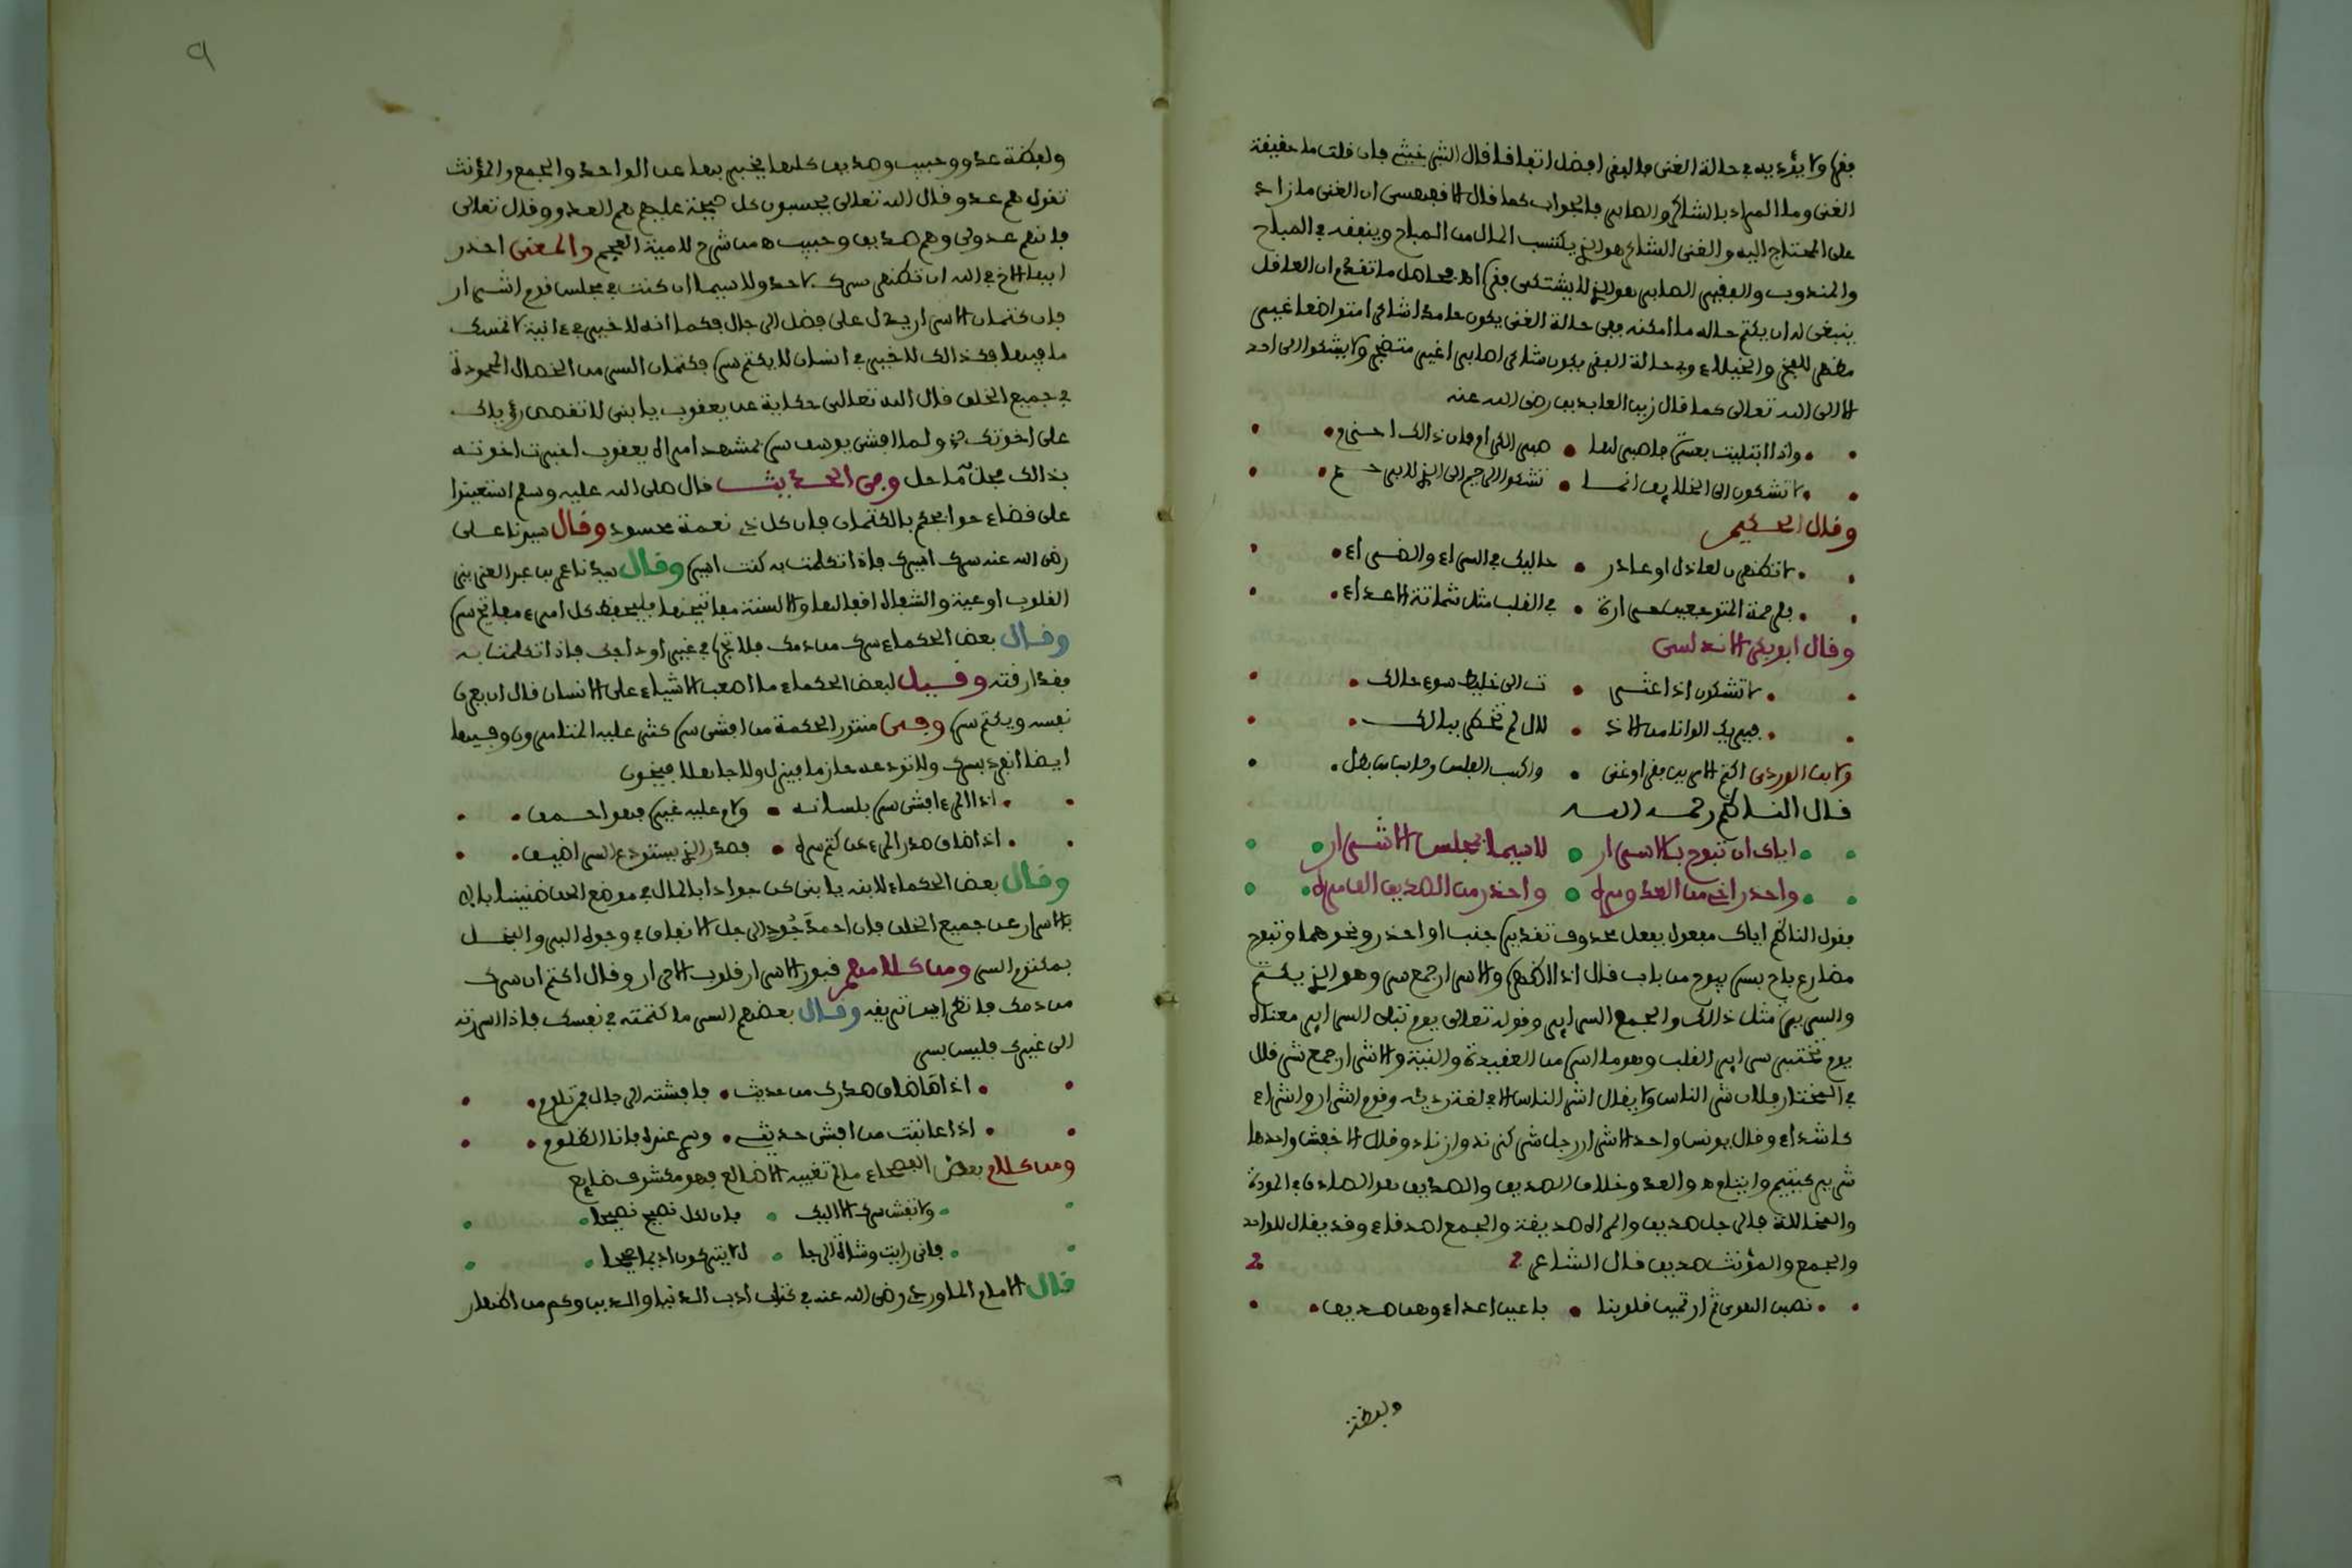 فقره ولا يؤديه في حالة الغنى فالفقر افضل اتفاقا قال الشبرخيثي فان قلت ما حقيقة
الغنى وما المراد بالشاكر والصابر فالجواب كما قال الاقفهسي ان الغنى ما زاد
على المحتاج اليه والغنى الشاكر هو الذي يكتسب المال من المباح وينفقه في المباح
والمندوب والفقير الصابر هو الذي لا يشتكي فقره اهـ فحاصل ما تقدم ان العاقل
ينبغي له ان يكتم حاله ما امكنه ففي حالة الغنى يكون حامدا شاكرا متواضعا غير
مظهر للفخر والخيلاء وفي حالة الفقر يكون شاكرا صابرا غير متضجر ولا يشكوا الى احد
الا الى الله تعالى كما قال زين العابدين رضي الله عنه
واذا ابتليت بعسرة فاصبر لها • صبر الكرام فان ذالك احزم
لا تشكون الى الخلايق انما • تشكوا الرحيم الى الذي لا يرحم
وقال الحكيم
لا تظهرن لعاذل او عاذر • حاليك في السراء والضراء
فلرحمة المتوجعين مرارة • في القلب مثل شماتة الاعداء
وقال ابو بكر الاندلسي
لا تشكون اذا عثر • ت الى خليط سوء حالك
فيريك الوانا من الاذ • لال لم تخطر ببالك
ولابن الوردي اكتم الامرين فقرا وغنى • واكسب الفلس وحاسب من بطل
قال الناظم رحمه الله
اياك ان تبوح بالاسرار • لاسيما بمجلس الاشرار
واحذر اخي من العدو مره • واحذر من الصديق الف مره
يقول الناظم اياك مفعول بفعل محذوف تقديره جنب او احذر ونحوهما وتبوح
مضارع باح بسره يبوح من باب قال اذا اظهره والاسرار جمع سر وهو الذي يكتم
والسريرة مثل ذالك والجمع السراير وقوله تعالى يوم تبلى السراير معناه
يوم تختبر سراير القلب وهو ما اسر من العقيدة والنية والاشرار جمع شر قال
في المختار فلان شر الناس ولا يقال اشر الناس الا في لغة رديئه وقوم اشرار واشراء
كاشداء وقال يونس واحد الاشرار رجل شر كزند وازناد وقال الاخفش واحدها
شرير كيتيم وايتام اهـ والعدو خلاف الصديق والصديق هو الصادق في المودة
والمخاللة فالرجل صديق والمراة صديقة والجمع اصدقاء وقد يقال للواحد
والجمع والمؤنث صديق قال الشاعر
نصبن الهوى ثم ارتمين قلوبنا • باعين اعداء وهن صديق
وبعظة
٩
ولفظة عدو وحبيب وصديق كلها يخبر بها عن الواحد والجمع والمؤنث
تقول هم عدو قال الله تعالى يحسبون كل صيحة عليهم هم العدو وقال تعالى
فانهم عدو لي وهم صديق وحبيب اهـ من شرح لامية العجم والمعنى احذر
ايها الاخ في الله ان تظهر سرك لاحد ولا سيما ان كنت في مجلس قوم اشرار
فان كتمان الاسرار يدل على فضل الرجال فكما انه لا خير في ءانية لا تمسك
ما فيها فكذالك لا خير في انسان لا يكتم سره فكتمان السر من الخصال المحمودة
في جميع الخلق قال الله تعالى حكاية عن يعقوب يا بني لا تقصص رؤياك
على اخوتك ولما افشى يوسف سره بمشهد امراة يعقوب اخبرت اخوته
بذالك فحل به ما حل وفي الحديث قال صلى الله عليه وسلم استعينوا
على قضاء حوايجكم بالكتمان فان كل ذي نعمة محسود وقال سيدنا على
رضي الله عنه سرك اسيرك فاذا تكلمت به كنت اسيره وقال سيدنا عمر بن عبد العزيز
القلوب اوعية والشفاه اقفالها والالسنة مفاتيحها فليحفظ كل امرء مفاتيح سره
وقال بعض الحكماء سرك من دمك فلا تجره في غير اوداجك فاذا تكلمت به
فقد ارقته وقيل لبعض الحكماء ما اصعب الاشياء على الانسان قال ان يعرف
نفسه ويكتم سره وفي منثور الحكمة من افشى سره كثر عليه المتامرون وفيها
ايضا انفرد بسرك ولا تودعه حازما فيزل ولا جاهلا فيخون
اذا المرء افشى سره بلسانه • ولام عليه غيره فهو احمق
اذا ضاق صدر المرء عن كتم سره • فصدر الذي يستودع السر اضيق
وقال بعض الحكماء لابنه يا بني كن جوادا بالمال في موضع الحق ضنينا
بالاسرار عن جميع الخلق فان احمد جود الرجل الانفاق في وجوه البر والبخل
بمكتوم السر ومن كلامهم قبور الاسرار قلوب الاحرار وقال اكتم ان سرك
من دمك فانظر اين تريقه وقال بعضهم السر ما كتمته في نفسك فاذا ابرزته
الى غيرك فليس بسر
اذا ما ضاق صدرك من حديث • فافشته الرجال فمن تلوم
اذا عاتبت من افشى حديثي • وسري عنده فانا الظلوم
ومن كلام بعض الفصحاء ما لم تغيبه الاضالع فهو مكشوف ضايع
ولا تفش سرك الا اليك • فان لكل نصيح نصيحا
فاني رايت وشاة الرجا • ل لا يتركون اديما صحيحا
قال الامام الماوردي رضي الله عنه في كتاب ادب الدنيا والدين وكم من اظهار